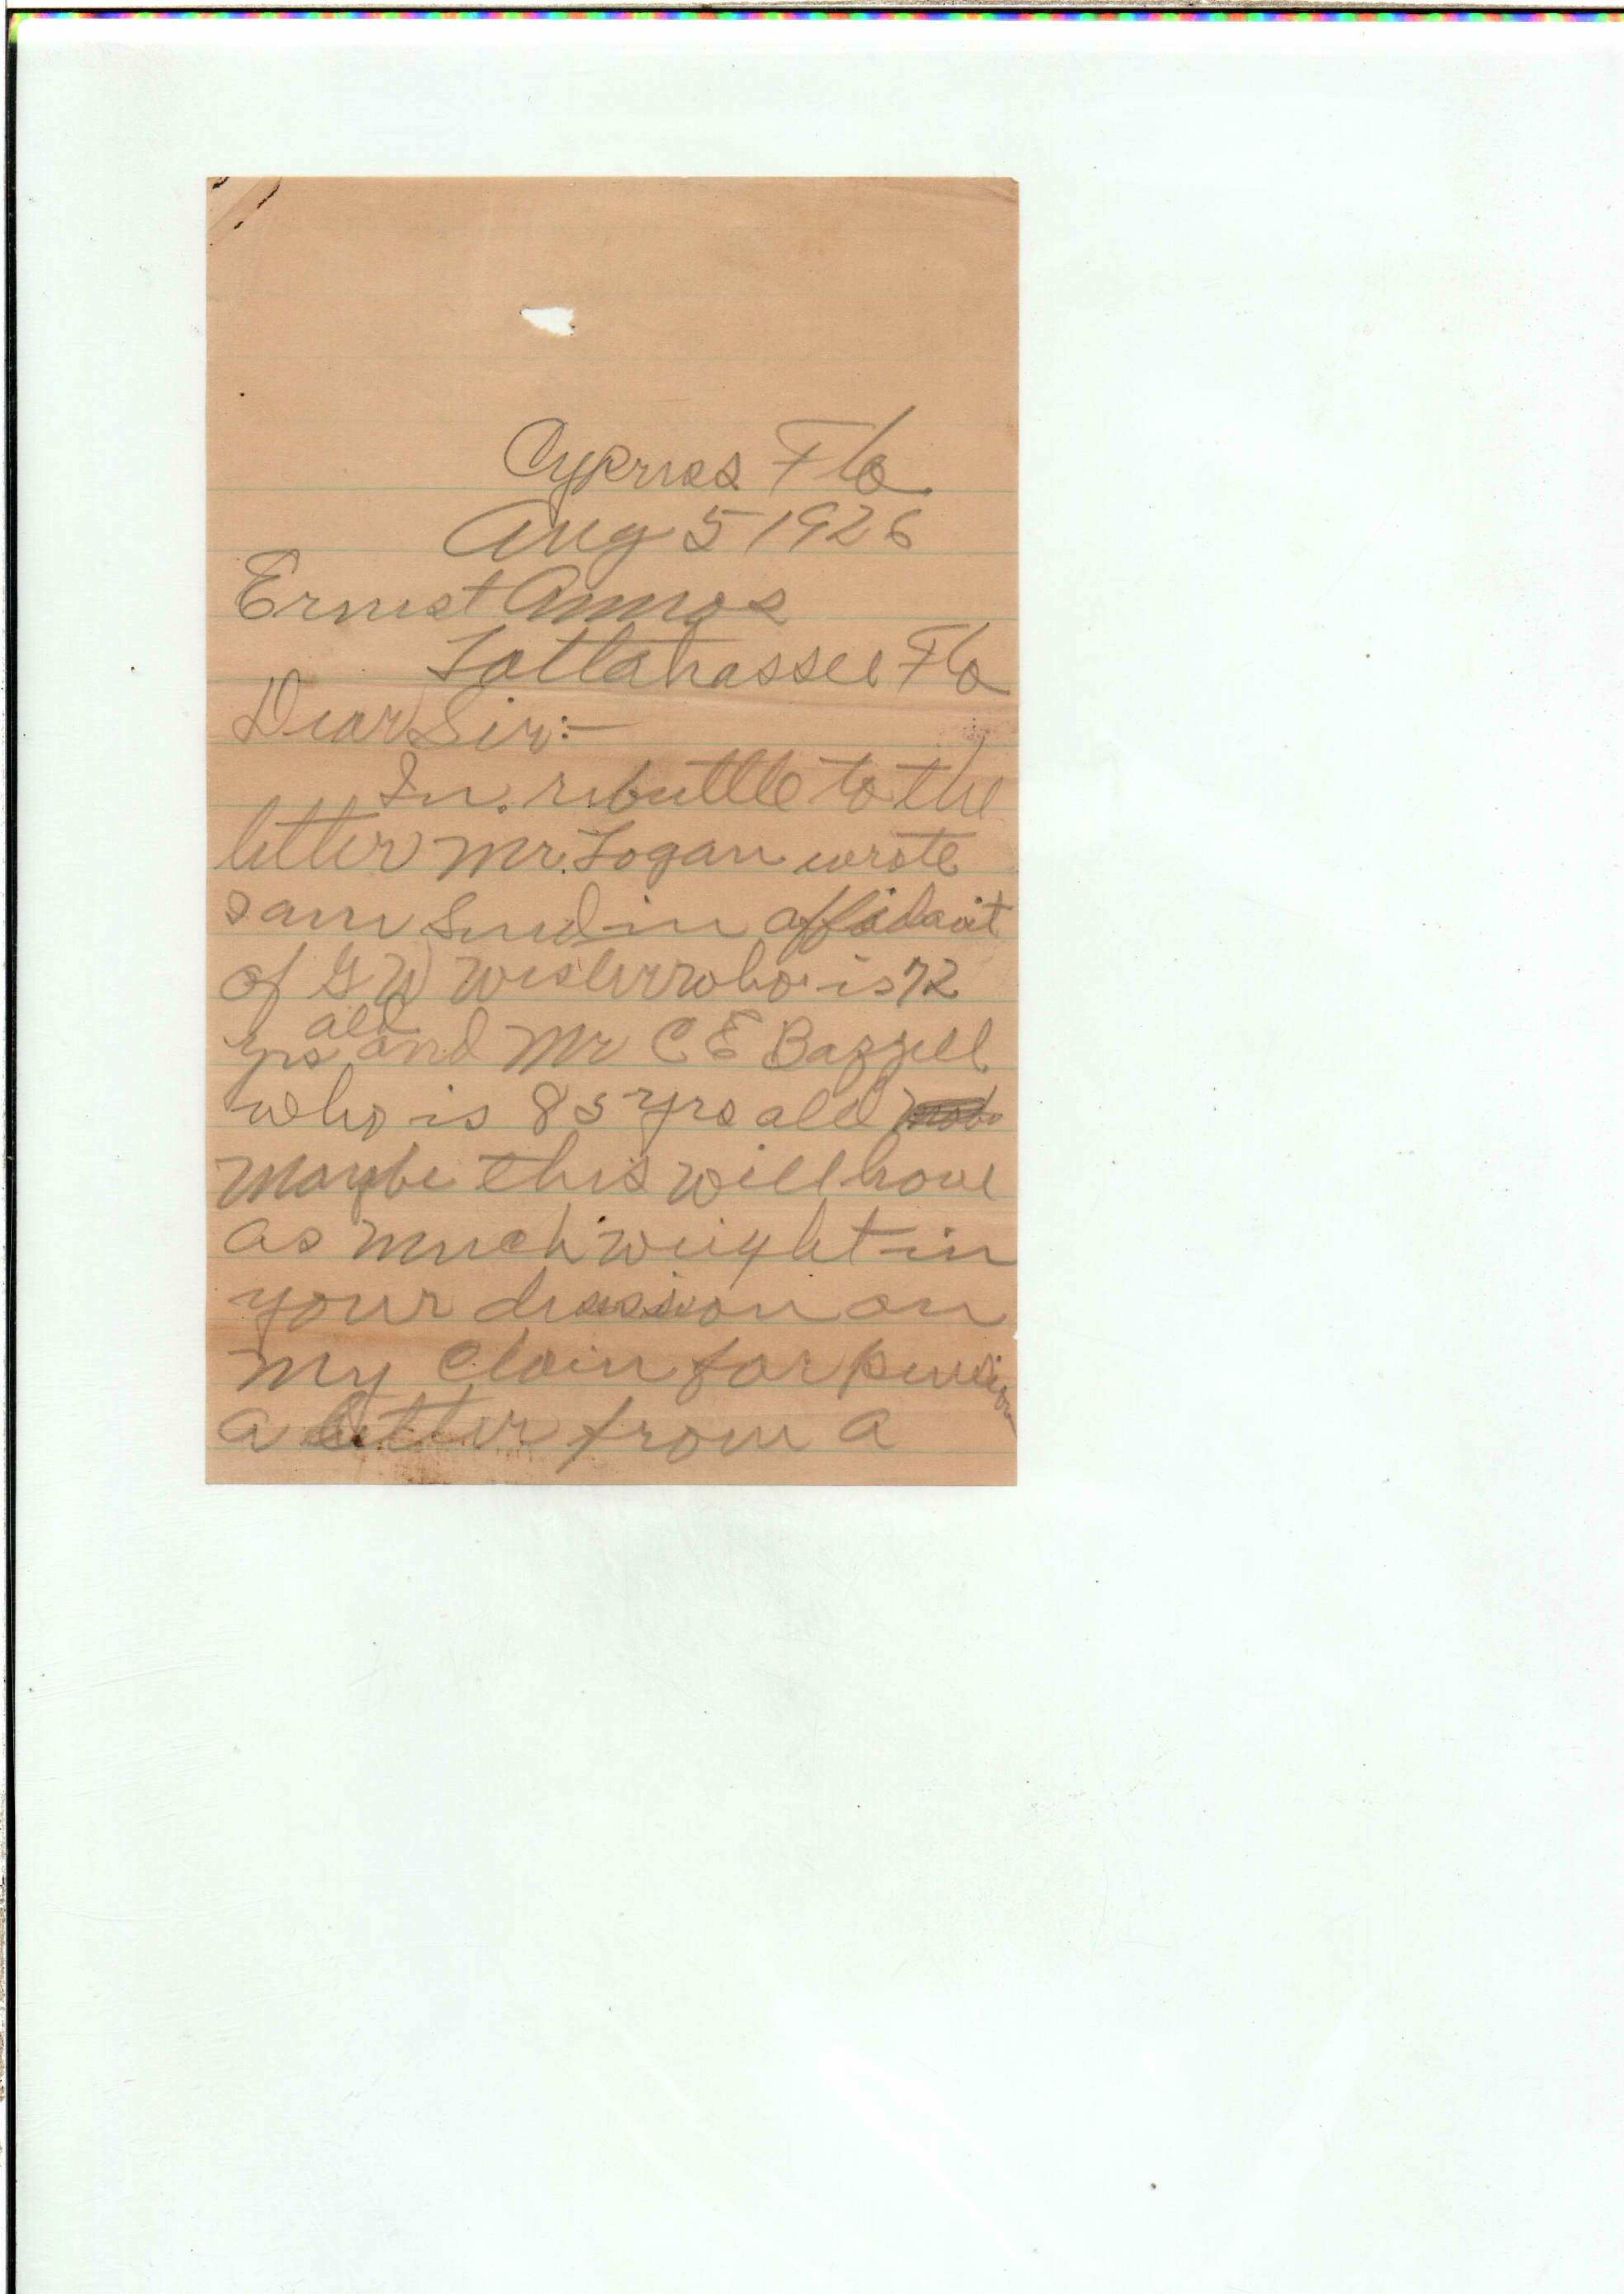 Cypress Fla
Aug 5 1926
Ernest Ammos
Tallahassee Fla
Dear Sir:-
In. rebuttle to the
letter Mr. Logan wrote
I am sending affidavit
of G W Wester who is 72
yrs old and Mr C E Bazzell
who is 85 yrs old
Maybe this will have
as much weight in
your decission on
my claim for pension
a letter from a